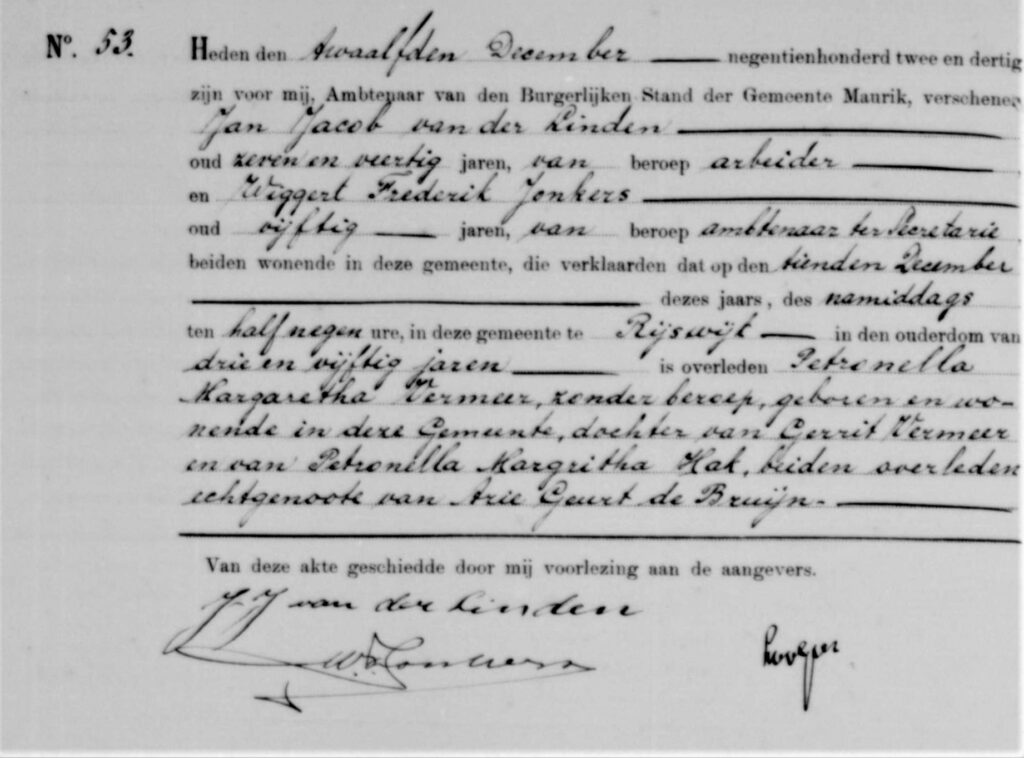 No. 53. Heden den twaalfden December negentienhonderd twee en dertig
zijn voor mij, Ambtenaar van den Burgerlijken Stand der Gemeente Maurik, verschenen
Jan Jacob van der Linden
oud zeven en veertig jaren, van beroep arbeider
en Wiggert Frederik Jonkers
oud vijftig jaren, van beroep ambtenaar ter Secretarie
beiden wonende in deze gemeente, die verklaarden dat op den tienden December
dezes jaars, des namiddags
ten half negen ure, in deze gemeente te Rijswijk in den ouderdom van
drie en vijftig jaren is overleden Petronella
Margaretha Vermeer, zonder beroep, geboren en wo-
nende in deze Gemeente, dochter van Gerrit Vermeer
en van Petronella Margritha Hak, beiden overleden
echtgenoote van Arie Geurt de Bruijn.
Van deze akte geschiedde door mij voorlezing aan de aangevers.
J. J. van der Linden